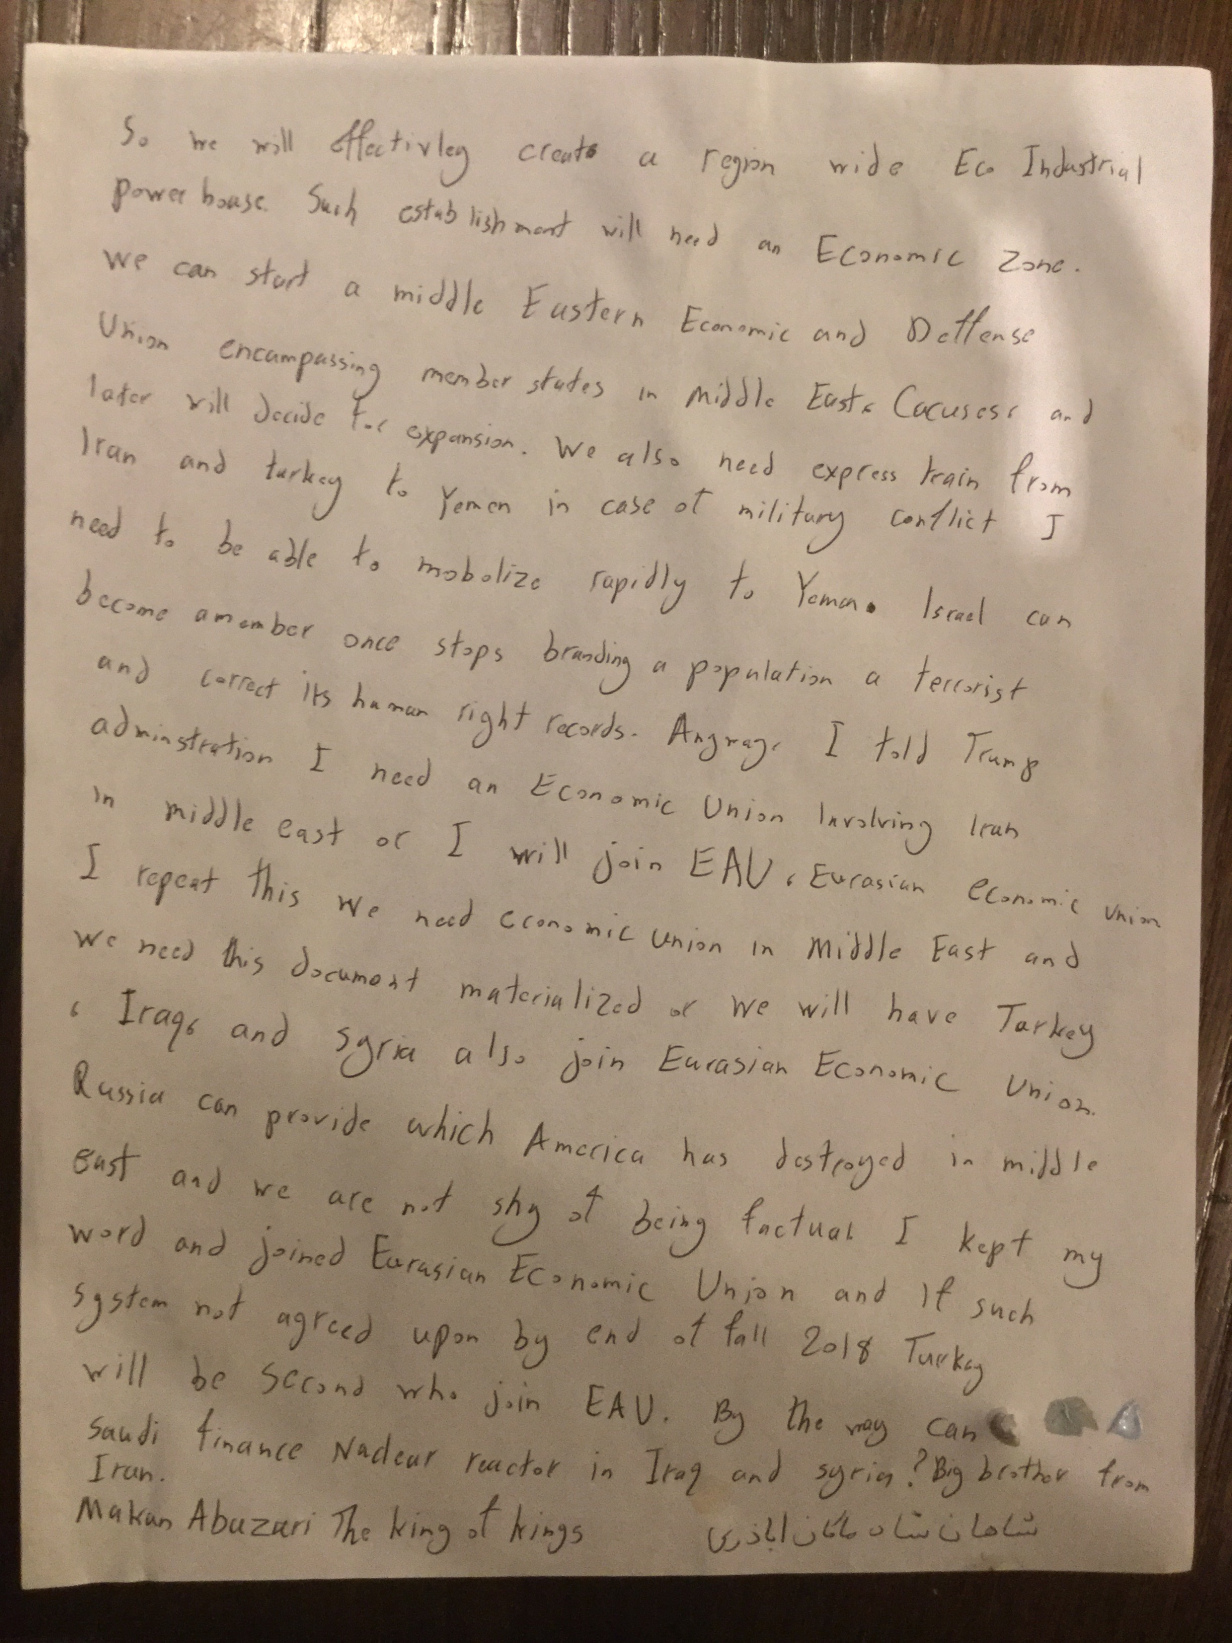 So we will effectivley create a region wide Eco Industrial
power house. Such establishment will need an Economic Zone.
We can start a middle Eastern Economic and Deffense
Union encampassing member states in middle East، Cacuses، and
later will decide for expansion. We also need express train from
Iran and turkey to Yemen in case of military conflict I
need to be able to mobolize rapidly to Yemen. Israel can
become a member once stops branding a population a terrorist
and correct its human right records. Anyway، I told Trump
adminstration I need an Economic Union Involving Iran
in middle east or I will join EAU، Eurasian economic union
I repeat this we need economic union in Middle East and
we need this document materialized or we will have Turkey
، Iraq، and syria also join Eurasian Economic Union.
Russia can provide which America has destroyed in middle
east and we are not shy of being factual. I kept my
word and joined Eurasian Economic Union and If such
system not agreed upon by end of fall 2018 Turkey
will be second who join EAU. By the way can
Saudi finance Nuclear reactor in Iraq and syria? Big brother from
Iran.
Makan Abazari The king of kings شاهان شاه ماکان اباذری